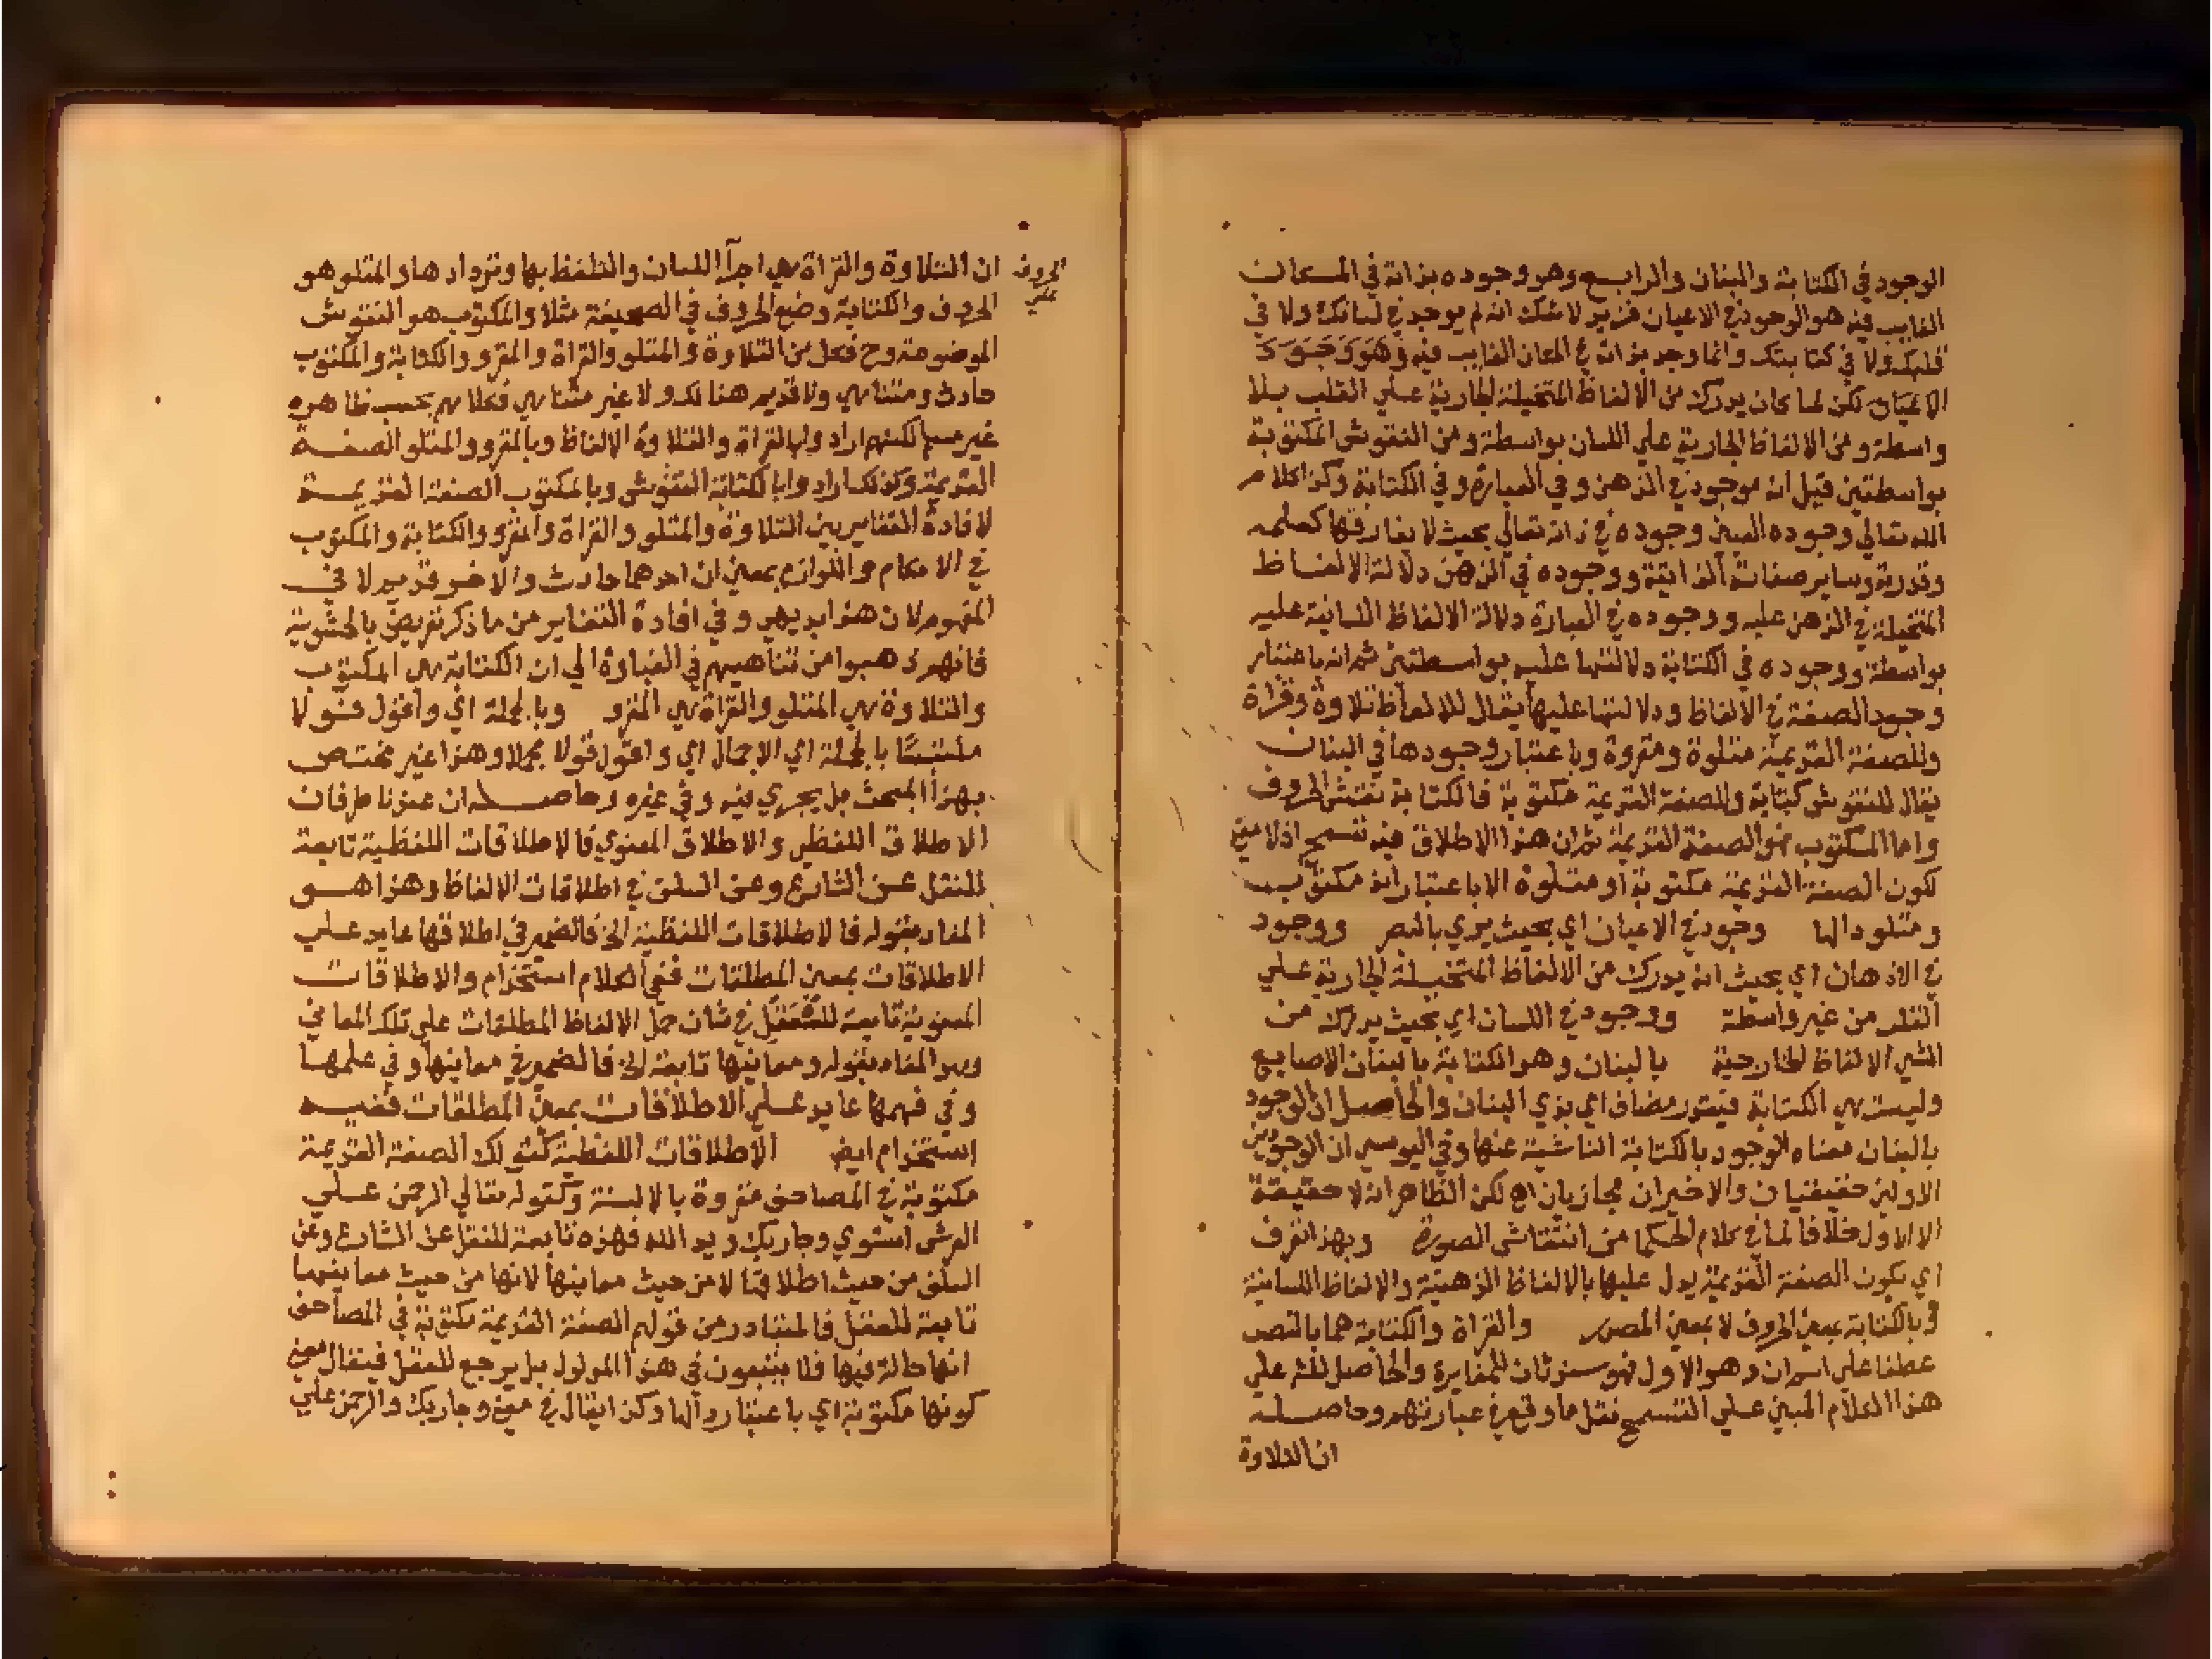 الوجود في الكتابة والبنان والرابع وهو وجوده بذاته في المكان
الغايب فيه هو الوجود في الاعيان فزيد لا شك انه لم يوجد في لسانك ولا في
قلبك ولا في كتابتك وانما وجد بذاته في المكان الغايب فيه وهو وجود
الاعيان لكن لما كان يدرك من الالفاظ المتخيلة الجارية علي القلب بلا
واسطة ومن الالفاظ الجارية علي اللسان بواسطة ومن النقوش المكتوبة
بواسطتين قيل انه موجود في الذهن وفي العبارة وفي الكتابة وكذا كلام
الله تعالي وجوده العيني وجوده في ذاته تعالي بحيث لا يفارقها كعلمه
وقدرته وساير صفاته الذاتية ووجوده في الذهن دلالة الالفاظ
المتخيلة في الذهن عليه ووجوده في العبارة دلالة الالفاظ اللسانية عليه
بواسطة ووجوده في الكتابة دلالتها عليه بواسطتين ثم انه باعتبار
وجود الصفة في الالفاظ ودلالتها عليها يقال للالفاظ تلاوة وقراة
وللصفة القديمة متلوة ومقروة وباعتبار وجودها في البنان
يقال للنقوش كتابة وللصفة القديمة مكتوبة فالكتابة نقش الحروف
واما المكتوب فهو الصفة القديمة ثم ان هذا الاطلاق فيه تسمح اذ لا معني
لكون الصفة القديمة مكتوبة او متلوة الا باعتبار انه مكتوب
ومتلو دالها وجود في الاعيان اي بحيث يري بالبصر ووجود
في الاذهان اي بحيث انه يدرك من الالفاظ المتخيلة الجارية علي
القلب من غير واسطة ووجود في اللسان اي بحيث يدرك من
الشي الالفاظ الخارجية بالبنان وهو الكتابة بالبنان الاصابع
وليست هي الكتابة فيقدر مضاف اي بذي البنان والحاصل ان الوجود
بالبنان معناه الوجود بالكتابة الناشية عنها وفي اليوسي ان الوجودين
الاولين حقيقيان والاخيران مجازيان اه لكن الظاهر انه لا حقيقة
الا الاول خلافا لما في كلام الحكما من انتقاش الصورة وبهذا تعرف
اي بكون الصفة القديمة يدل عليها بالالفاظ الذهنية والالفاظ اللسانية
وبالكتابة بمعني الحروف لا بمعني المصدر والقراة والكتابة هما بالنصب
عطفا علي اسم ان وهو الاول
هذا الكلام المبني علي التسمح نقل ما وقع في عبارتهم وحاصله
ان التلاوة
ان التلاوة والقراة هي اجرا اللسان والتلفظ بها وتردادها والمتلو هو
الحروف
علي
الحروف والكتابة وضع الحروف في الصحيفة مثلا والمكتوب هو النقوش
الموضوعة وح فكل من التلاوة والمتلو والقراة والمقرو والكتابة والمكتوب
حادث ومتناهي ولا قديم هنالك ولا غير متناهي فكلامهم بحسب ظاهره
غير مسلم لكنهم ارادوا بالقراة والتلاوة الالفاظ وبالمقرو والمتلو الصفة
القديمة وكذلك ارادوا بالكتابة النقوش وبالمكتوب الصفة القديمة
لافادة التغاير بين التلاوة والمتلو والقراة والمقرو والكتابة والمكتوب
في الاحكام واللوازم بمعني ان احدهما حادث والاخر قديم لا في
المفهوم لان هذا بديهي وفي افادة التغاير من ما ذكر تعريض بالحشوية
فانهم ذهبوا من تناهيهم في الغباوة الي ان الكتابة هي المكتوب
والتلاوة هي المتلو والقراة هي المقرو وبالجملة اي واقول قولا
ملتبسًا بالجملة اي الاجمال اي واقول قولا مجملا وهذا غير مختص
بهذا المبحث بل يجري فيه وفي غيره وحاصله ان عندنا طرفان
الاطلاق اللفظي والاطلاق المعنوي فالاطلاقات اللفظية تابعة
للنقل عن الشارع وعن السلف في اطلاقات الالفاظ وهذا هو
المفاد بقوله فالاطلاقات اللفظية الخ فالضمير في اطلاقها عايد علي
الاطلاقات بمعني المطلقات ففي الكلام استخدام والاطلاقات
المعنوية تابعة للعقل في شان حمل الالفاظ المطلقات علي تلك المعاني
وهو المفاد بقوله ومعاينها تابعة الخ فالضمير في معاينها وفي علمها
وفي فهمها عايد علي الاطلاقات بمعني المطلقات ففيه
استخدام ايض الاطلاقات اللفظية كقولك الصفة القديمة
مكتوبة في المصاحف مقروة بالالسنة وكقوله تعالي الرحمن علي
العرش استوي وجا ربك ويد الله فهذه تابعة للنقل عن الشارع وعن
السلف من حيث اطلاقها لا من حيث معاينها لانها من حيث معاينها
تابعة للعقل فالمتبادر من قولهم الصفة القديمة مكتوبة في المصاحف
انها حالة فيها فلا يتبعون في هذا المدلول بل يرجع للعقل فيقال معني
كونها مكتوبة اي باعتبار دالها وكذا يقال في معني وجا ربك والرحمن علي